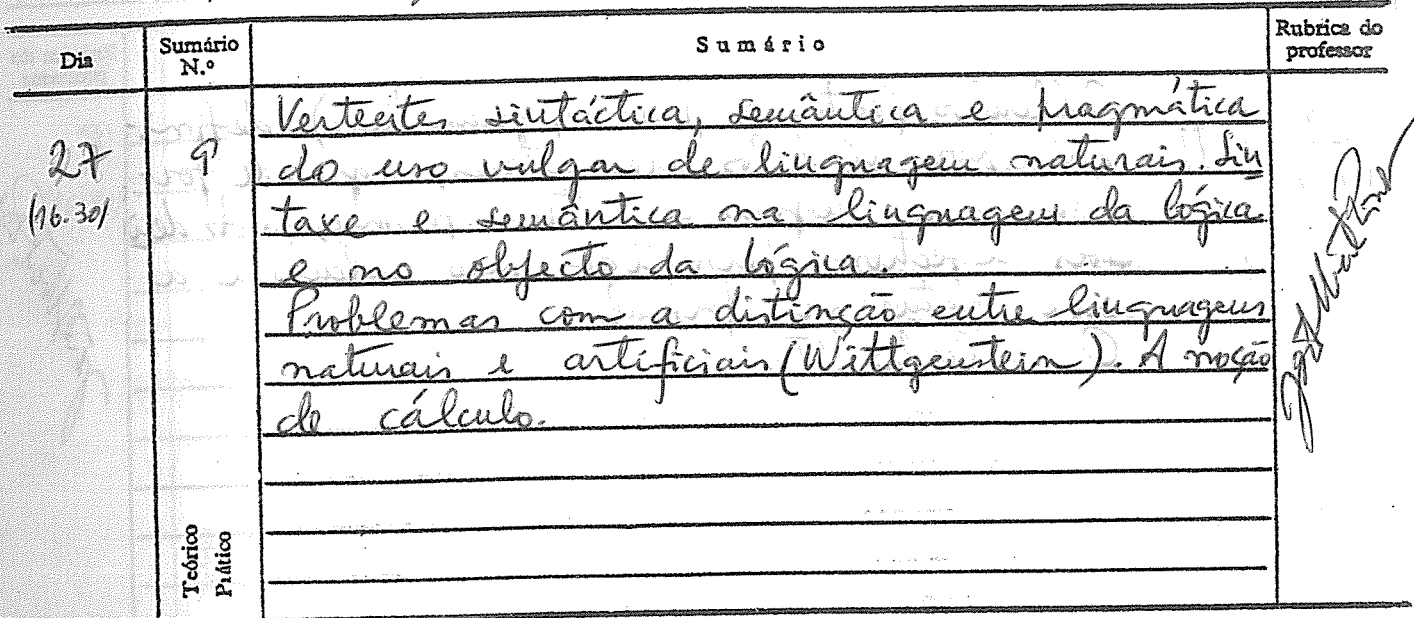 Dia
Sumário N.º
Sumário
Rubrica do professor
27
(16.30)
9
Vertentes sintáctica, semântica e pragmática
do uso vulgar de linguagem naturais. Sin
taxe e semântica na linguagem da lógica
e no objecto da lógica.
Problemas com a distinção entre linguagens
naturais e artificiais (Wittgenstein). A noção
de cálculo.
Teórico
Prático